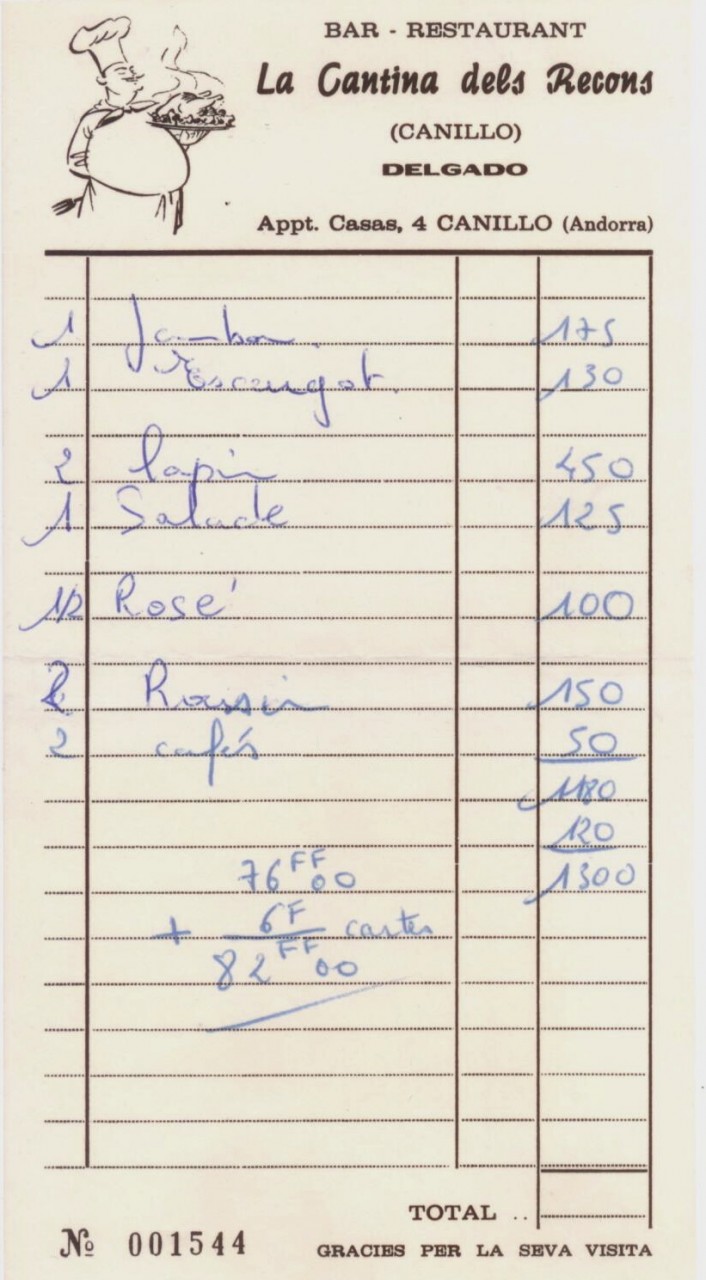 BAR - RESTAURANT
La Cantina dels Recons
(CANILLO)
DELGADO
Appt. Casas, 4 CANILLO (Andorra)
1 Jambon. 175
1 Escargot. 130
2 lapin 450
1 Salade 125
1/2 Rosé 100
2 150
2 cafés 50
1180
120
76 FF 00 1300
+ 6F cartes
82 FF 00
TOTAL ..
Nº 001544
GRACIES PER LA SEVA VISITA